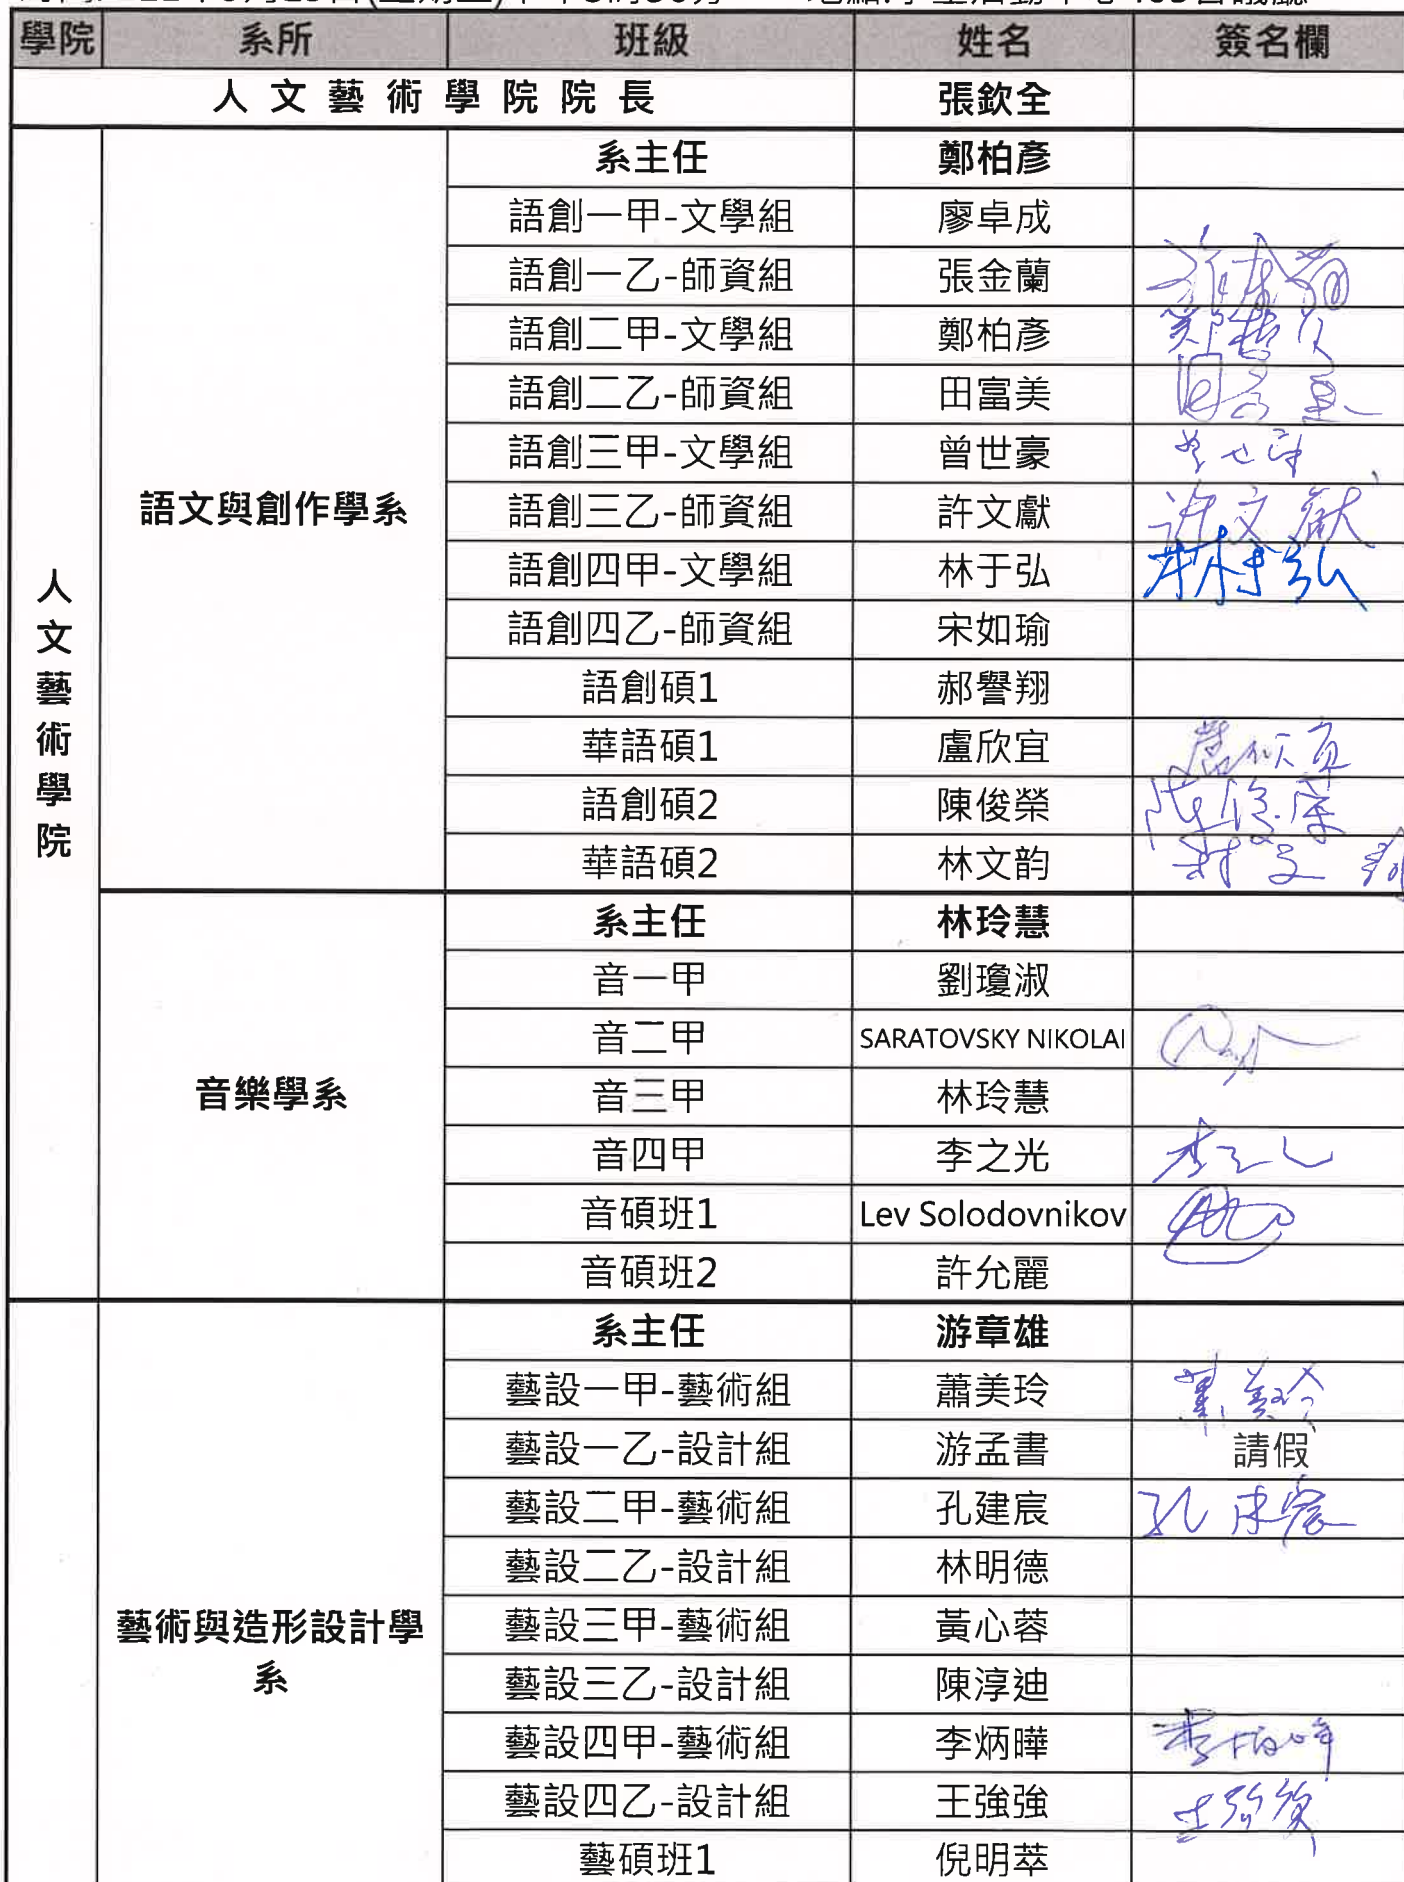 學院 系所 班級 姓名 簽名欄
人文藝術學院院長 張欽全
人文藝術學院
語文與創作學系
系主任 鄭柏彥
語創一甲-文學組 廖卓成
語創一乙-師資組 張金蘭 張金蘭
語創二甲-文學組 鄭柏彥
語創二乙-師資組 田富美 田富美
語創三甲-文學組 曾世豪 曾世豪
語創三乙-師資組 許文獻 許文獻
語創四甲-文學組 林于弘 林于弘
語創四乙-師資組 宋如瑜
語創碩1 郝譽翔
華語碩1 盧欣宜
語創碩2 陳俊榮 陳俊榮
華語碩2 林文韵 林文韵
音樂學系
系主任 林玲慧
音一甲 劉瓊淑
音二甲 SARATOVSKY NIKOLAI
音三甲 林玲慧
音四甲 李之光
音碩班1 Lev Solodovnikov
音碩班2 許允麗
藝術與造形設計學
系
系主任 游章雄
藝設一甲-藝術組 蕭美玲 蕭美玲
藝設一乙-設計組 游孟書 請假
藝設二甲-藝術組 孔建宸 孔建宸
藝設二乙-設計組 林明德
藝設三甲-藝術組 黃心蓉
藝設三乙-設計組 陳淳迪
藝設四甲-藝術組 李炳曄 李炳曄
藝設四乙-設計組 王強強 王強強
藝碩班1 倪明萃